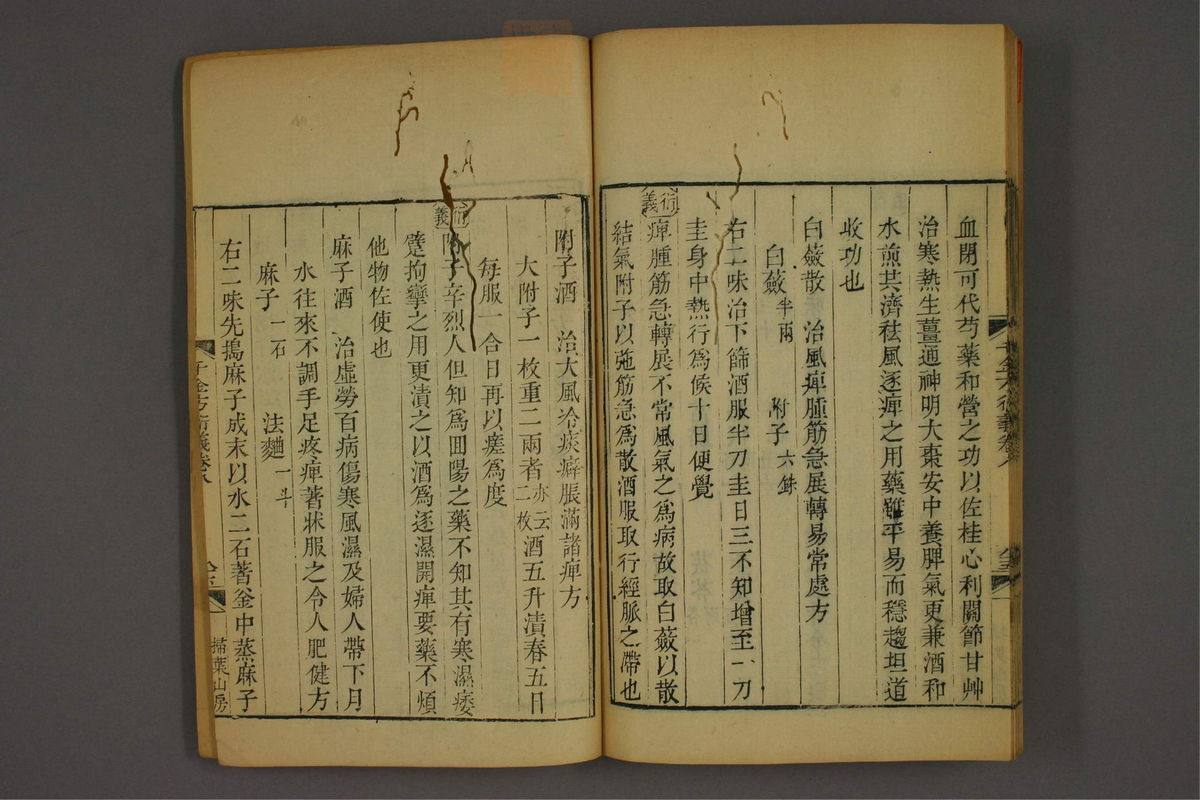 血閉可代芍藥和營之功以佐桂心利關節甘艸
治寒熱生薑通神明大棗安中養脾氣更兼酒和
水煎共濟祛風逐痺之用藥雖平易而穩趨坦道
收功也
白蘞散　治風痺腫筋急展轉易常處方
白蘞半兩　附子六銖
右二味治下篩酒服半刀圭日三不知增至一刀
圭身中熱行爲候十日便覺
衍義
痺腫筋急轉展不常風氣之爲病故取白蘞以散
結氣附子以弛筋急爲散酒服取行經脈之滯也
千金方衍義卷八
附子酒　治大風冷痰癖脹滿諸痺方
大附子一枚重二兩者亦云二枚酒五升漬春五日
每服一合日再以瘥爲度
衍義
附子辛烈人但知爲回陽之藥不知其有寒濕痿
躄拘攣之用更漬之以酒爲逐濕開痺要藥不煩
他物佐使也
麻子酒　治虛勞百病傷寒風濕及婦人帶下月
水往來不調手足疼痺著牀服之令人肥健方
麻子一石　法麯一斗
右二味先搗麻子成末以水二石著釜中蒸麻子
千金方衍義卷八
掃葉山房